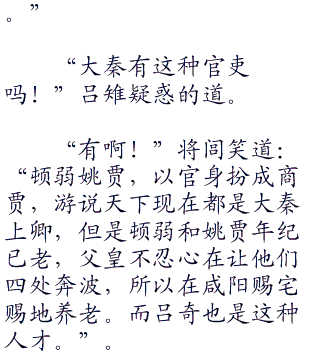 。”
“大秦有这种官吏
吗！”吕雉疑惑的道。
“有啊！”将闾笑道：
“顿弱姚贾，以官身扮成商
贾，游说天下现在都是大秦
上卿，但是顿弱和姚贾年纪
已老，父皇不忍心在让他们
四处奔波，所以在咸阳赐宅
赐地养老。而吕奇也是这种
人才。”。